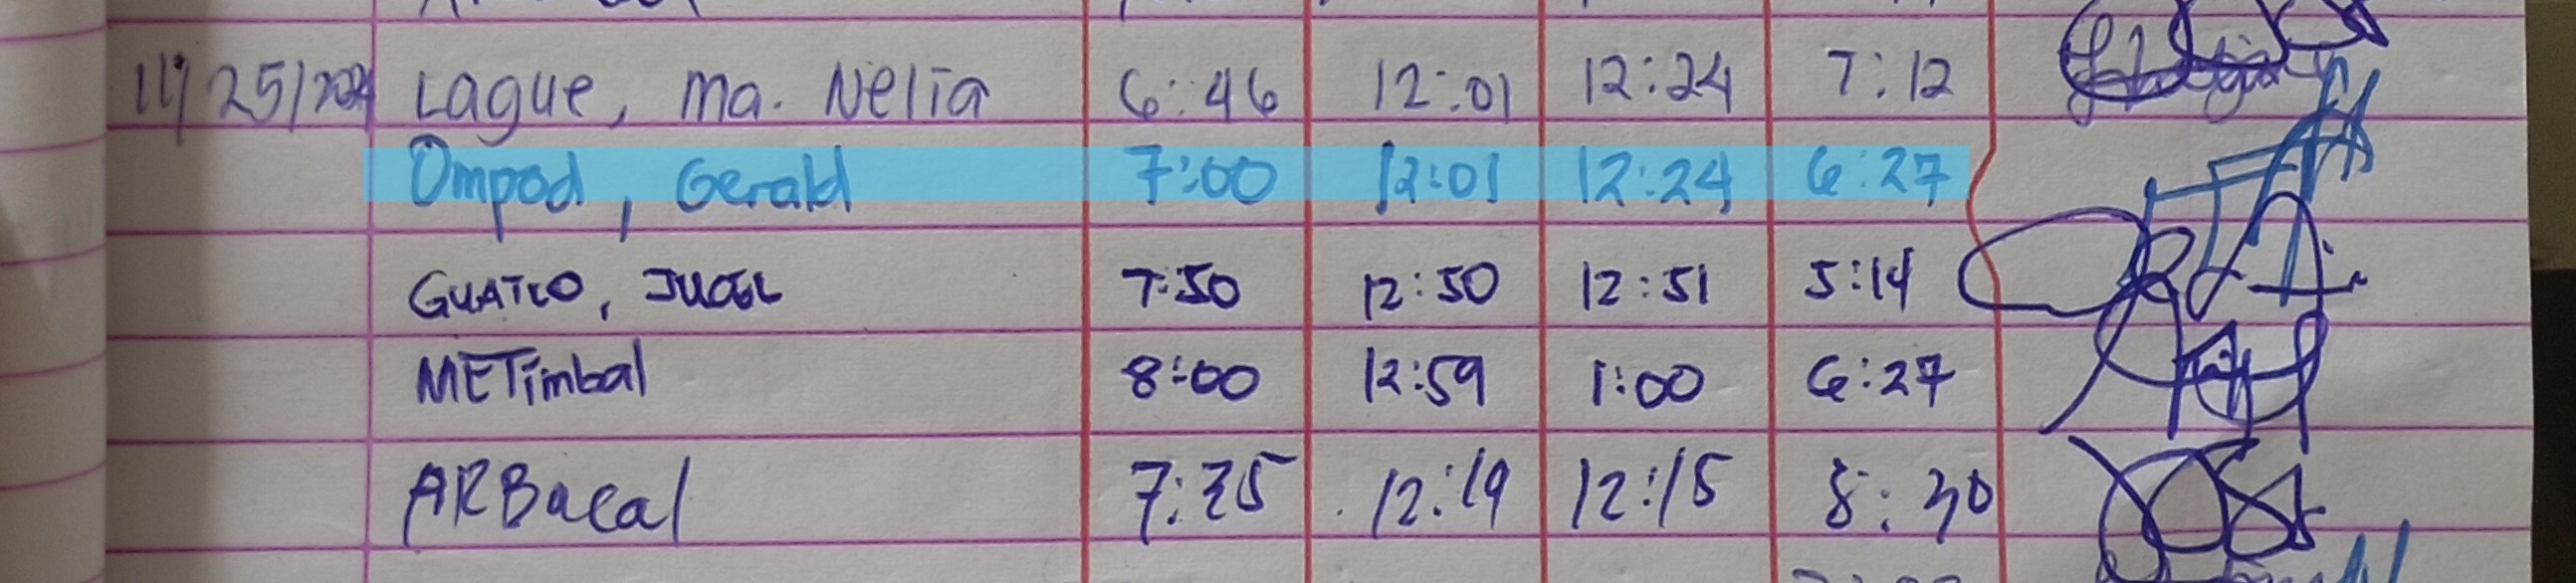 11/25/2024 Lague, Ma. Nelia 6:46 12:01 12:24 7:12
Ompod, Gerald 7:00 12:01 12:24 6:27
GUATCO, 7:50 12:50 12:51 5:14
METimbal 8:00 12:59 1:00 6:27
ARBacal 12:19 12:15 8:30